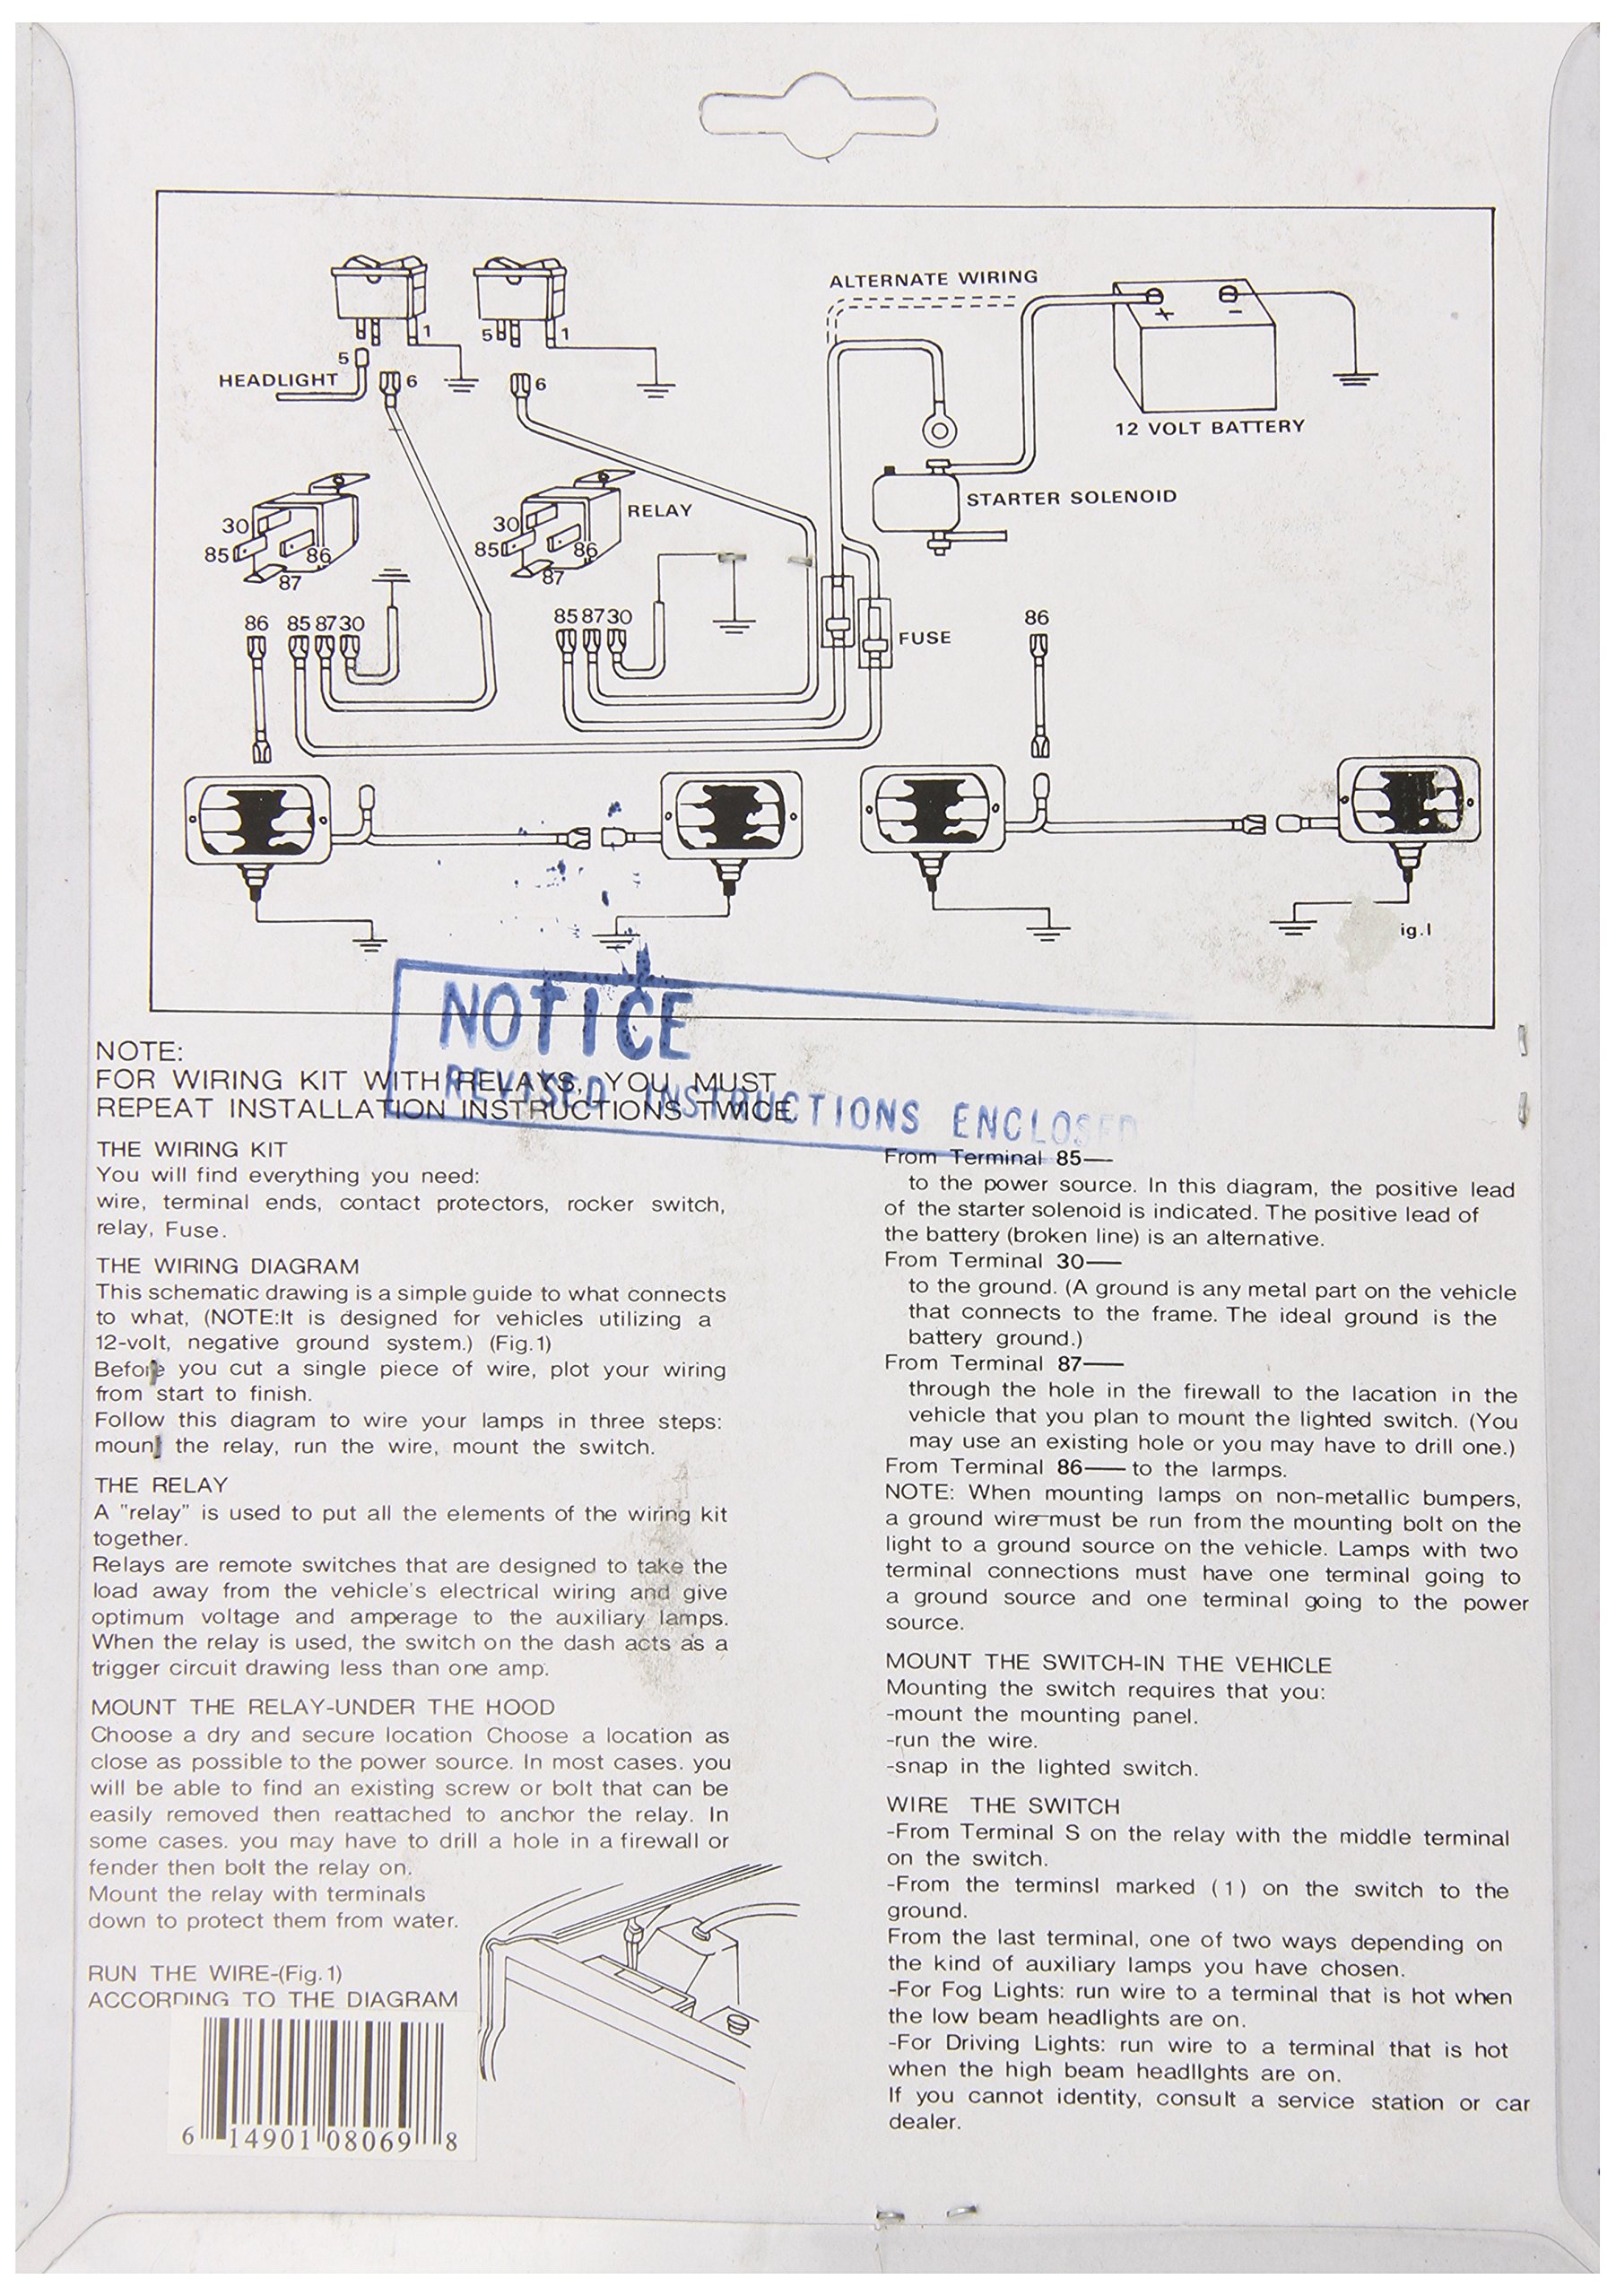 ALTERNATE WIRING
1
5
1
5
HEADLIGHT
6
6
+
−
12 VOLT BATTERY
STARTER SOLENOID
RELAY
30
85
86
87
30
85
86
87
FUSE
86 85 87 30
85 87 30
86
ig.I
NOTICE
REVISED INSTRUCTIONS ENCLOSED
NOTE:
FOR WIRING KIT WITH RELAYS, YOU MUST
REPEAT INSTALLATION INSTRUCTIONS TWICE.
THE WIRING KIT
You will find everything you need:
wire, terminal ends, contact protectors, rocker switch,
relay, Fuse.
THE WIRING DIAGRAM
This schematic drawing is a simple guide to what connects
to what, (NOTE:It is designed for vehicles utilizing a
12-volt, negative ground system.) (Fig.1)
Before you cut a single piece of wire, plot your wiring
from start to finish.
Follow this diagram to wire your lamps in three steps:
mount the relay, run the wire, mount the switch.
THE RELAY
A "relay" is used to put all the elements of the wiring kit
together.
Relays are remote switches that are designed to take the
load away from the vehicle's electrical wiring and give
optimum voltage and amperage to the auxiliary lamps.
When the relay is used, the switch on the dash acts as a
trigger circuit drawing less than one amp.
MOUNT THE RELAY-UNDER THE HOOD
Choose a dry and secure location Choose a location as
close as possible to the power source. In most cases. you
will be able to find an existing screw or bolt that can be
easily removed then reattached to anchor the relay. In
some cases. you may have to drill a hole in a firewall or
fender then bolt the relay on.
Mount the relay with terminals
down to protect them from water.
RUN THE WIRE-(Fig.1)
ACCORDING TO THE DIAGRAM
6 14901 08069 8
From Terminal 85—
to the power source. In this diagram, the positive lead
of the starter solenoid is indicated. The positive lead of
the battery (broken line) is an alternative.
From Terminal 30—
to the ground. (A ground is any metal part on the vehicle
that connects to the frame. The ideal ground is the
battery ground.)
From Terminal 87—
through the hole in the firewall to the lacation in the
vehicle that you plan to mount the lighted switch. (You
may use an existing hole or you may have to drill one.)
From Terminal 86— to the larmps.
NOTE: When mounting lamps on non-metallic bumpers,
a ground wire must be run from the mounting bolt on the
light to a ground source on the vehicle. Lamps with two
terminal connections must have one terminal going to
a ground source and one terminal going to the power
source.
MOUNT THE SWITCH-IN THE VEHICLE
Mounting the switch requires that you:
-mount the mounting panel.
-run the wire.
-snap in the lighted switch.
WIRE THE SWITCH
-From Terminal S on the relay with the middle terminal
on the switch.
-From the terminsl marked (1) on the switch to the
ground.
From the last terminal, one of two ways depending on
the kind of auxiliary lamps you have chosen.
-For Fog Lights: run wire to a terminal that is hot when
the low beam headlights are on.
-For Driving Lights: run wire to a terminal that is hot
when the high beam headlIghts are on.
If you cannot identity, consult a service station or car
dealer.